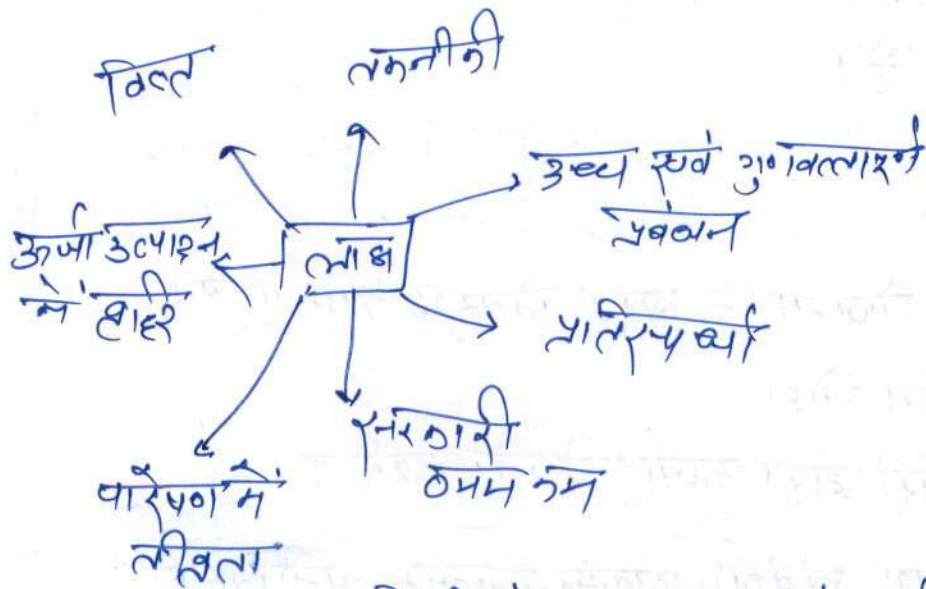 वित्त
तकनीकी
उच्च एवं गुणवत्तापूर्ण
प्रबंधन
ऊर्जा उत्पादन
में वृद्धि
लाभ
प्रतिस्पर्धा
सरकारी
व्यय कम
पारेषण में
तीव्रता